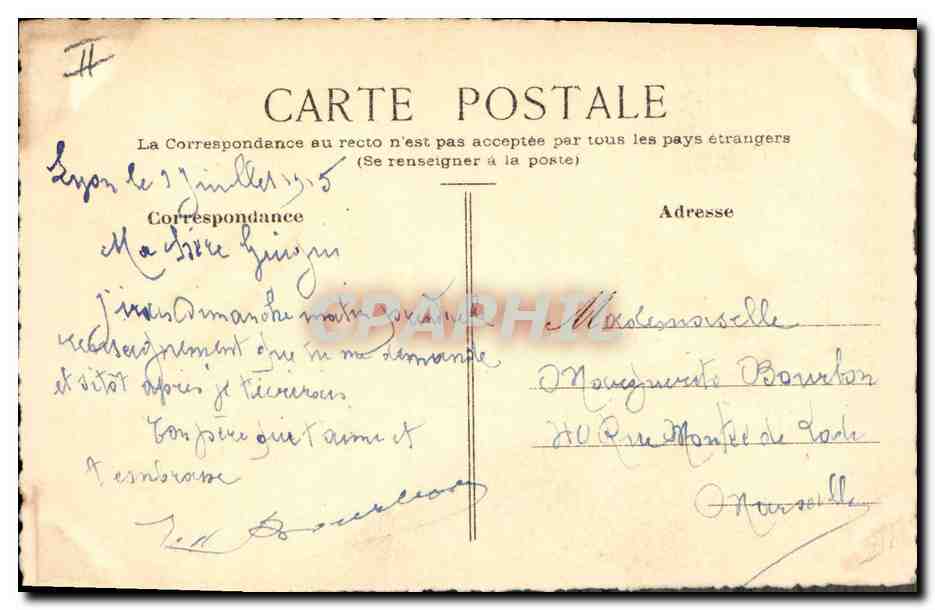 II
CARTE POSTALE
La Correspondance au recto n'est pas acceptée par tous les pays étrangers
(Se renseigner à la poste)
Lyon le Juillet 1915
Correspondance
Ma
J'irais dimanche matin prendre
renseignement que tu me demande
et sitôt après je t'écrirais
Ton père qui t'aime et
t'embrasse
Bourbon
Adresse
Mademoiselle
Marguerite Bourbon
40 Rue Montée de Lodi
Marseille
CPAPHIL